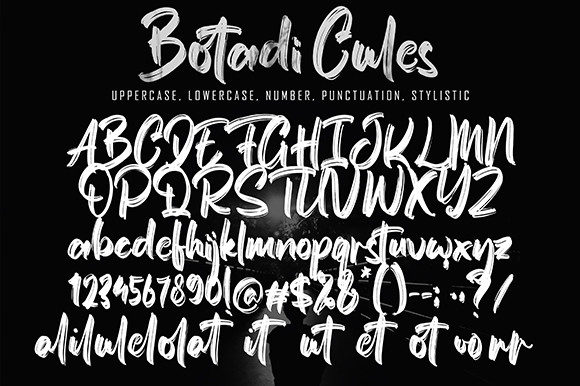 Botadi Cules
UPPERCASE, LOWERCASE, NUMBER, PUNCTUATION, STYLISTIC
ABCDEFGHIJKLMN
OPQRSTUVWXYZ
abcdefhijklmnopqrstuvwxyz
1234567890!@#$%&*()--:;··?/
alilulelolat it ut et ot oo rr